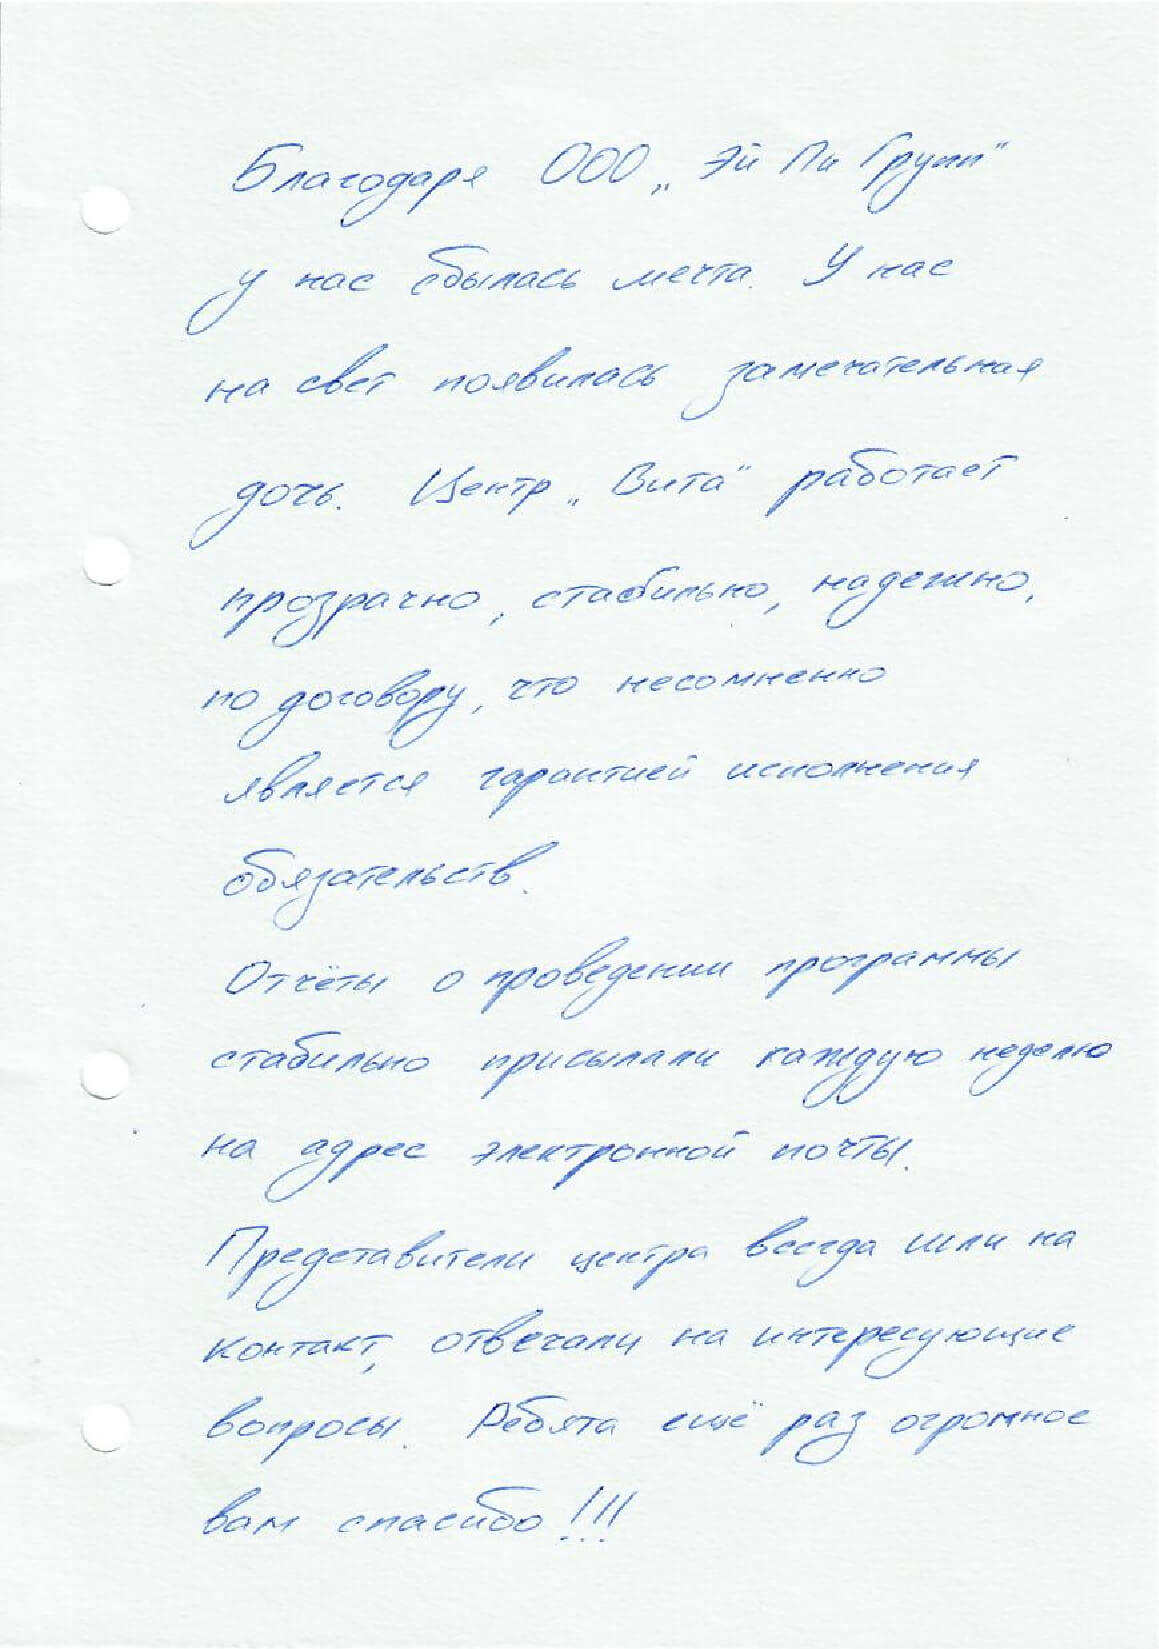 Благодаря ООО „Эй Пи Групп"
у нас сбылась мечта. У нас
на свет появилась замечательная
дочь. Центр „Вита" работает
прозрачно, стабильно, надежно,
по договору, что несомненно
является гарантией исполнения
обязательств.
Отчёты о проведении программы
стабильно присылали каждую неделю
на адрес электронной почты.
Представители центра всегда шли на
контакт, отвечали на интересующие
вопросы. Ребята ещё раз огромное
вам спасибо!!!